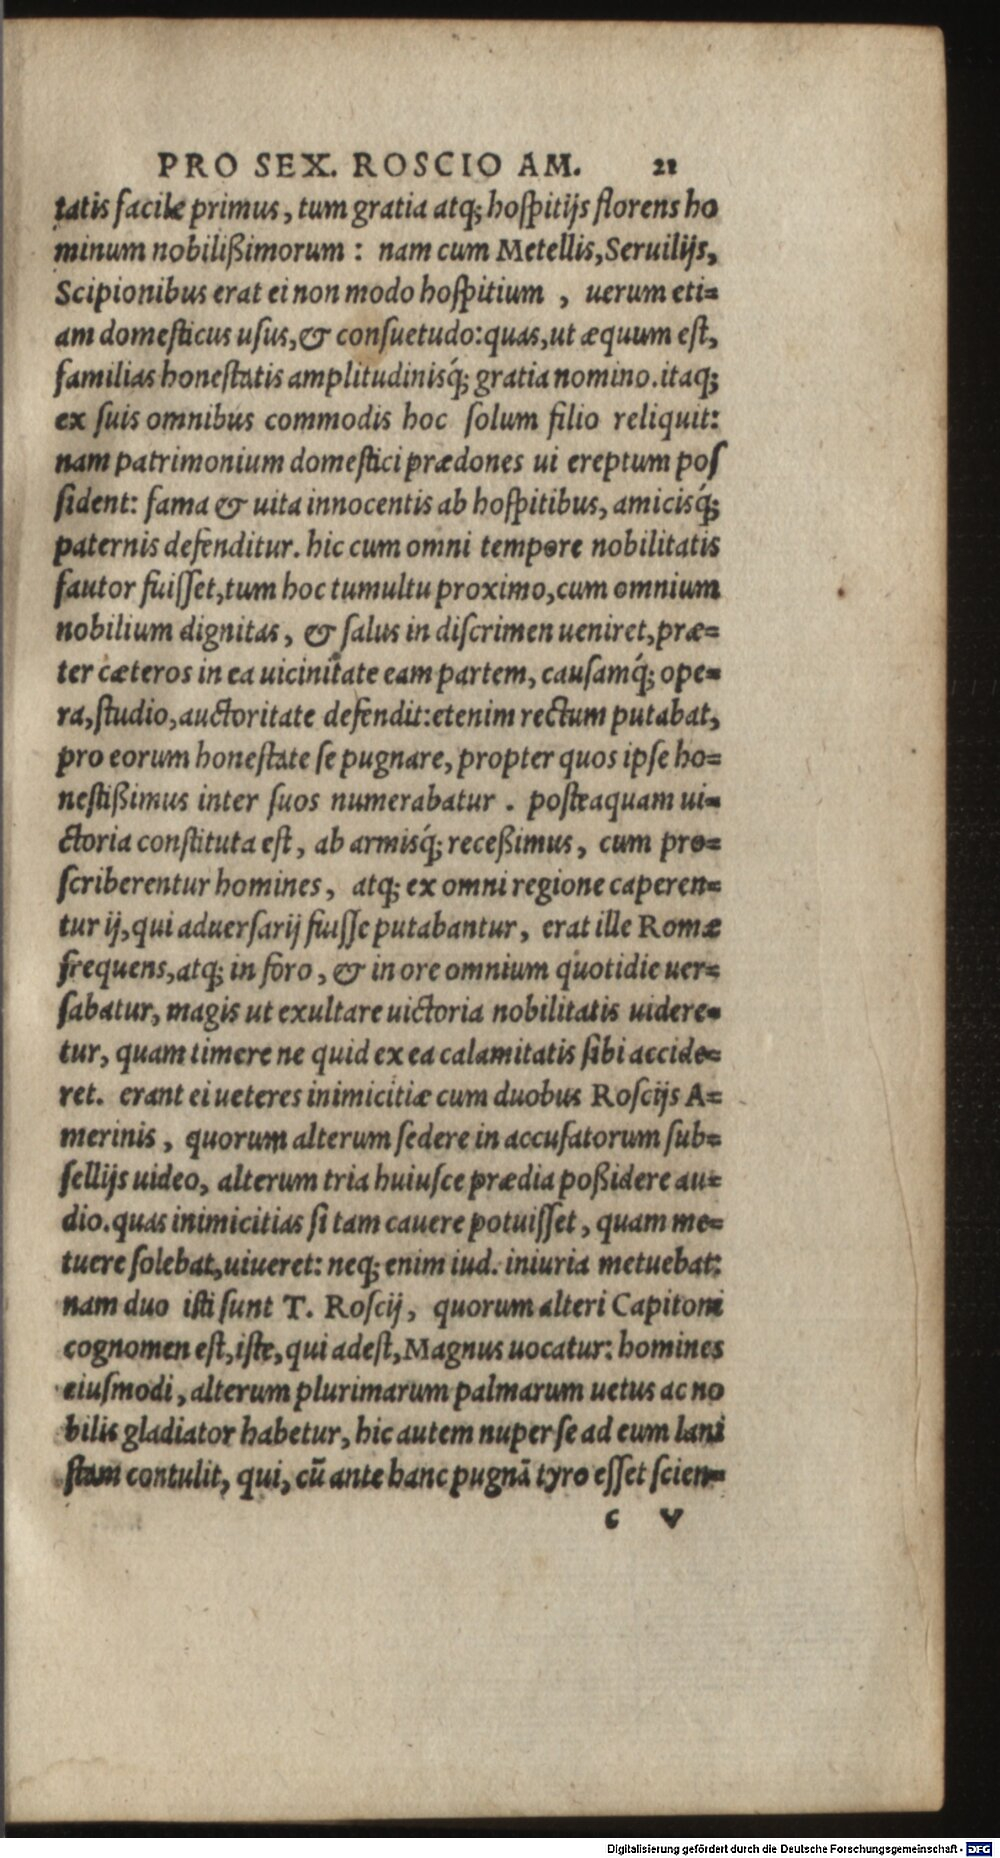 PRO SEX. ROSCIO AM. 21
tatis facile primus, tum gratia atq; hospitijs florens ho
minum nobilißimorum : nam cum Metellis, Seruilijs,
Scipionibus erat ei non modo hospitium , uerum eti=
am domesticus usus, & consuetudo: quas, ut æquum est,
familias honestatis amplitudinisq́; gratia nomino. itaq;
ex suis omnibus commodis hoc solum filio reliquit:
nam patrimonium domestici prædones ui ereptum pos
sident: fama & uita innocentis ab hospitibus, amicisq́;
paternis defenditur. hic cum omni tempore nobilitatis
fautor fuisset, tum hoc tumultu proximo, cum omnium
nobilium dignitas, & salus in discrimen ueniret, præ=
ter cæteros in ea uicinitate eam partem, causamq́; ope=
ra, studio, auctoritate defendit: etenim rectum putabat,
pro eorum honestate se pugnare, propter quos ipse ho=
nestißimus inter suos numerabatur . posteaquam ui=
ctoria constituta est, ab armisq́; receßimus, cum pro=
scriberentur homines, atq; ex omni regione caperen=
tur ij, qui aduersarij fuisse putabantur, erat ille Romæ
frequens, atq; in foro, & in ore omnium quotidie uer=
sabatur, magis ut exultare uictoria nobilitatis uidere=
tur, quam timere ne quid ex ea calamitatis sibi accide=
ret. erant ei ueteres inimicitiæ cum duobus Roscijs A=
merinis, quorum alterum sedere in accusatorum sub=
sellijs uideo, alterum tria huiusce prædia poßidere au=
dio. quas inimicitias si tam cauere potuisset, quam me=
tuere solebat, uiueret: neq; enim iud. iniuria metuebat:
nam duo isti sunt T. Roscij, quorum alteri Capitoni
cognomen est, iste, qui adest, Magnus uocatur: homines
eiusmodi, alterum plurimarum palmarum uetus ac no
bilis gladiator habetur, hic autem nuper se ad eum lani
stam contulit, qui, cū ante hanc pugnā tyro esset scien=
c v
Digitalisierung gefördert durch die Deutsche Forschungsgemeinschaft - DFG